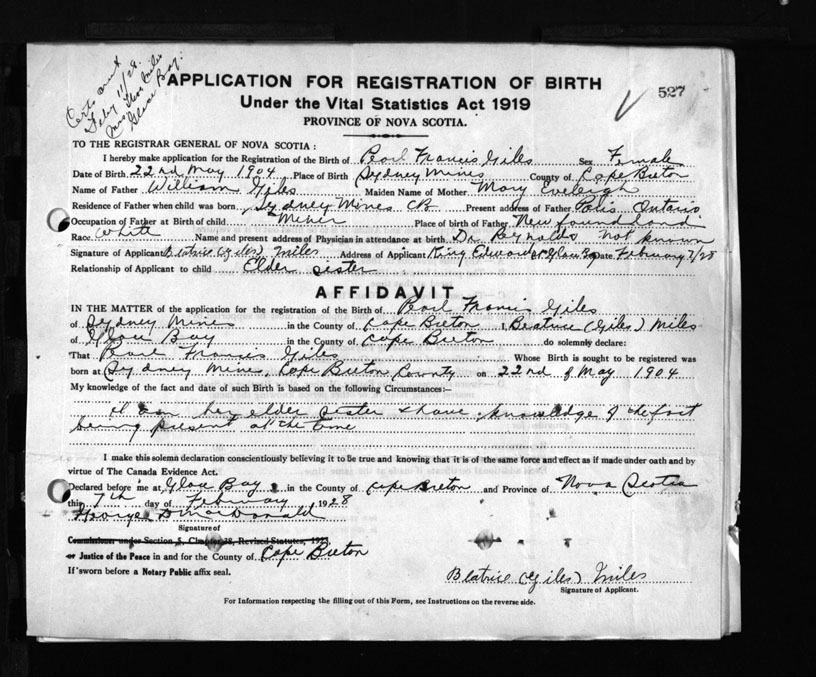 Certs sent
Feby 11/28.
Mrs Miles
Glace Bay.
APPLICATION FOR REGISTRATION OF BIRTH
527
Under the Vital Statistics Act 1919
PROVINCE OF NOVA SCOTIA.
TO THE REGISTRAR GENERAL OF NOVA SCOTIA :
I hereby make application for the Registration of the Birth of Pearl Francis Giles Sex Female
Date of Birth 22nd May 1904 Place of Birth Sydney Mines County of Cape Breton
Name of Father William Giles Maiden Name of Mother Mary Eveleigh
Residence of Father when child was born, Sydney Mines CB Present address of Father Ontario
Occupation of Father at Birth of child Miner Place of birth of Father Newfoundland
Race White Name and present address of Physician in attendance at birth Dr Reynolds not known
Signature of Applicant Beatrice (Giles) Miles Address of Applicant King Edward St Glace Bay Date February 7/28
Relationship of Applicant to child Elder sister
AFFIDAVIT
IN THE MATTER of the application for the registration of the Birth of Pearl Francis Giles
of Sydney Mines in the County of Cape Breton I, Beatrice (Giles) Miles
of Glace Bay in the County of Cape Breton do solemnly declare:
That Pearl Francis Giles Whose Birth is sought to be registered was
born at Sydney Mines, Cape Breton County on 22nd of May 1904
My knowledge of the fact and date of such Birth is based on the following Circumstances:—
I am her elder sister & have knowledge of the fact
being present at the time
I make this solemn declaration conscientiously believing it to be true and knowing that it is of the same force and effect as if made under oath and by
virtue of The Canada Evidence Act.
Declared before me at Glace Bay in the County of Cape Breton and Province of Nova Scotia
this 7th day of February 1928
George D MacDonald
Signature of
Commissioner under Section 5, Chapter 38, Revised Statutes, 1923
or Justice of the Peace in and for the County of Cape Breton
If sworn before a Notary Public affix seal.
Beatrice (Giles) Miles
Signature of Applicant.
For Information respecting the filling out of this Form, see Instructions on the reverse side.